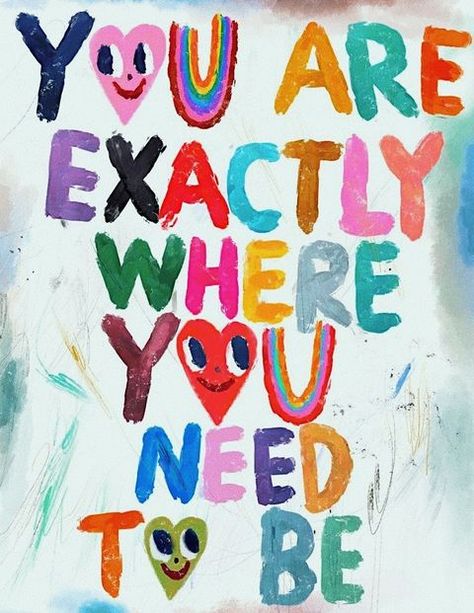 YOU ARE
EXACTLY
WHERE
YOU
NEED
TO BE